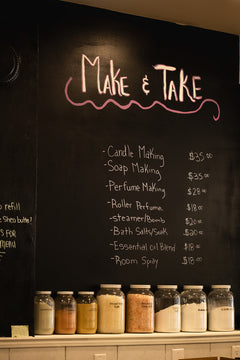 Make & Take
- Candle Making $35.00
- Soap Making $35.00
- Perfume Making $28.00
- Roller Perfume $18.00
- Steamer/Bomb $20.00
- Bath Salts/Soak $20.00
- Essential oil Blend $18.00
- Room Spray $18.00
refill
shea butter!
s for
menu